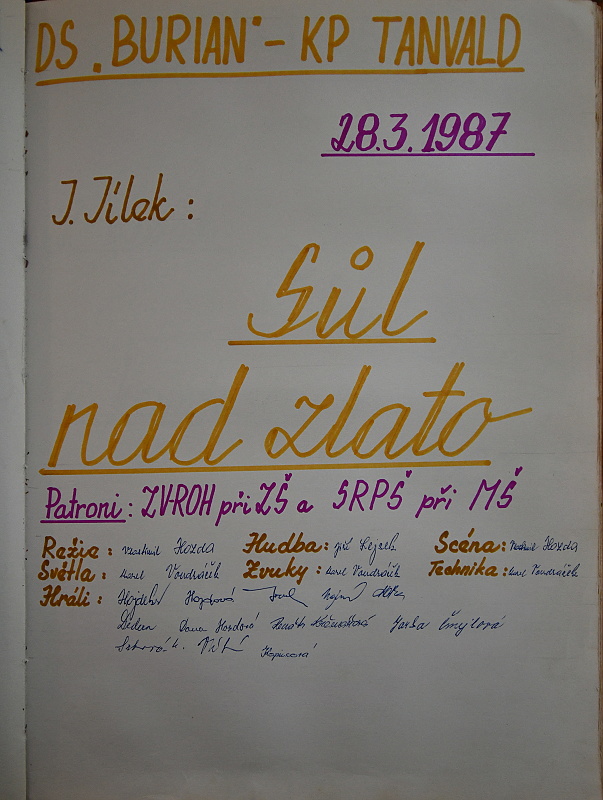 DS „BURIAN“ - KP TANVALD
28.3.1987
J. Jílek :
Sůl
nad zlato
Patroni : ZV-ROH při ZŠ a SRPŠ při MŠ
Režie : Vlastimil Hozda Hudba : Jiří Lejsek Scéna : Hozda
Světla : Karel Vondráček Zvuky : Karel Vondráček Technika : Karel Vondráček
Hráli :
Dana Šmýdová